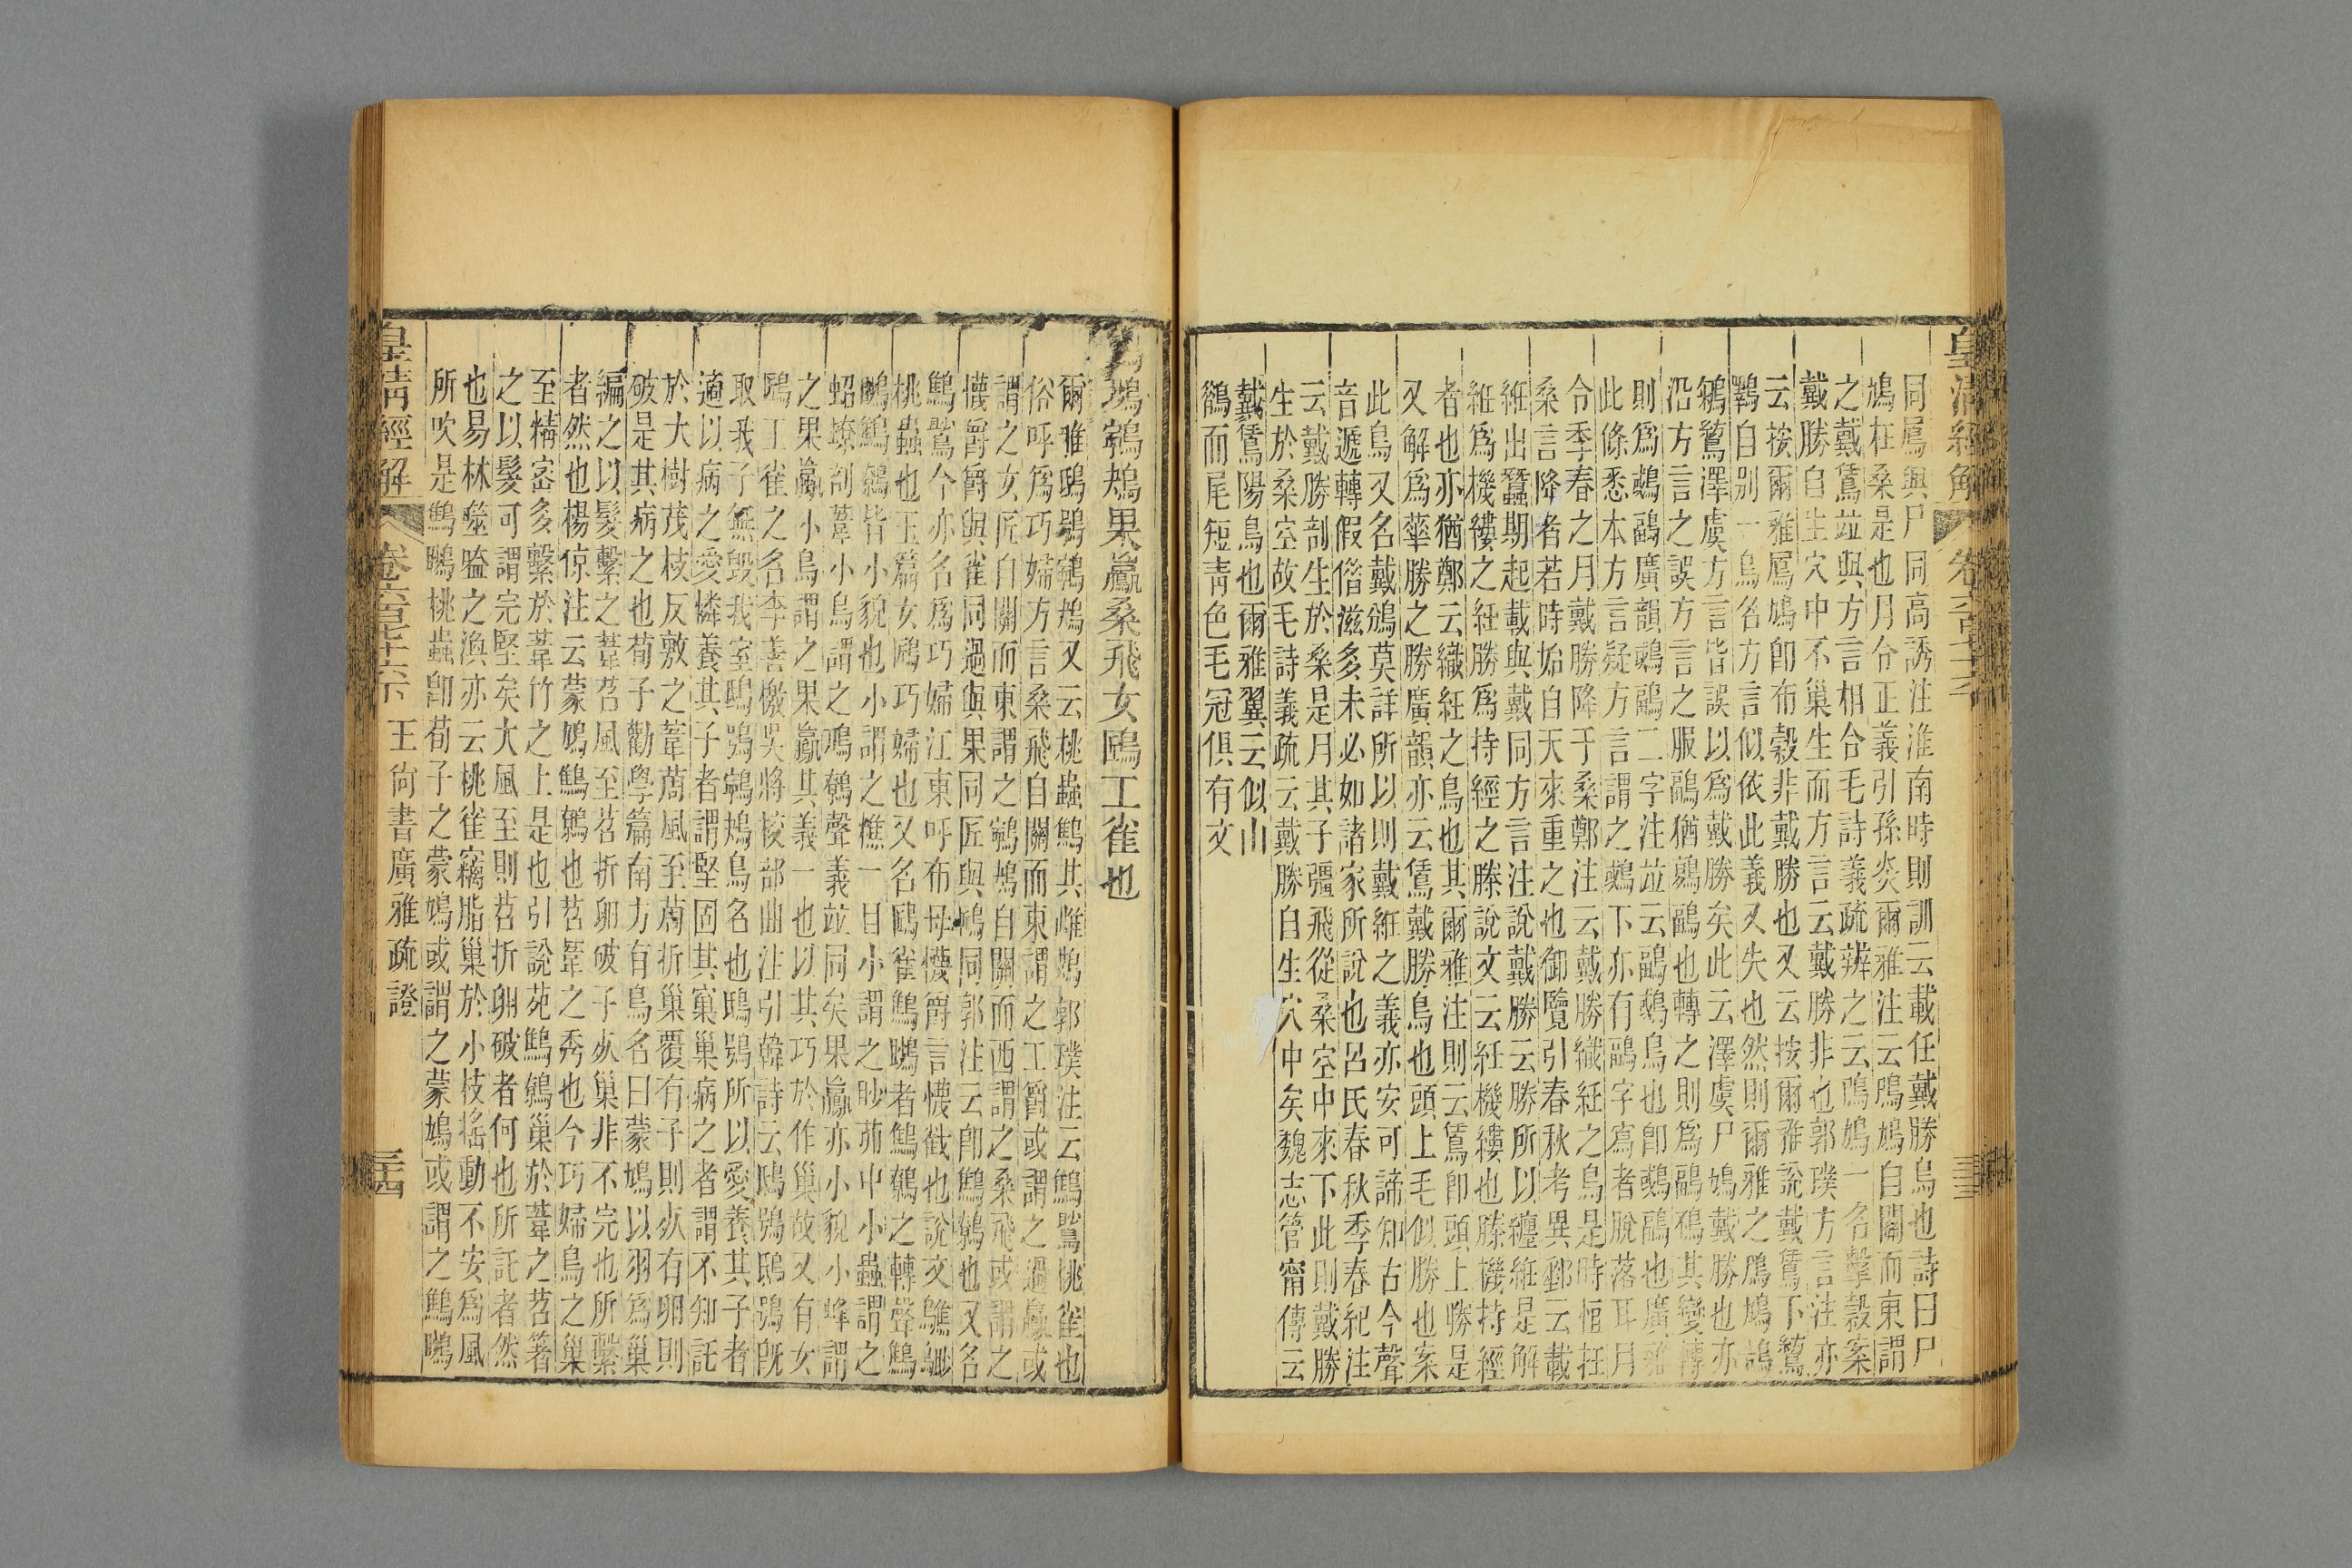 皇清經解
同鳲與尸同高誘注淮南時則訓云戴任戴勝鳥也詩曰尸
鳩在桑是也月令正義引孫炎爾雅注云鳲鳩自關而東謂
之戴鵀竝與方言相合毛詩義疏辨之云鳲鳩一名擊穀案
戴勝自生穴中不巢生而方言云戴勝非也郭璞方言注亦
云按爾雅鳲鳩卽布穀非戴勝也又云按爾雅說戴鵀下
自別一鳥名方言似依此義又失也然則爾雅之鳲鳩
澤虞方言皆誤以爲戴勝矣此云澤虞尸鳩戴勝也亦
沿方言之誤方言之服鶝猶鶝也轉之則爲鶝其變轉
則爲鶝廣韻鶝二字注竝云鶝鳥也卽鶝也廣雅
此條悉本方言疑方言謂之下亦有鶝字寫者脫落耳月
令季春之月戴勝降于桑鄭注云戴勝織紝之鳥是時恒在
桑言降者若時始自天來重之也御覽引春秋考異郵云載
紝出蠶期起載與戴同方言注說戴勝云勝所以纏紝是解
紝爲機縷之紝勝爲持經之縢說文云紝機縷也縢機持經
者也亦猶鄭云織紝之鳥也其爾雅注則云鵀卽頭上勝是
又解爲華勝之勝廣韻亦云鵀戴勝鳥也頭上毛似勝也案
此鳥又名戴鳻莫詳所以則戴紝之義亦安可諦知古今聲
音遞轉假偺滋多未必如諸家所說也呂氏春秋季春紀注
云戴勝剖生於桑是月其子彊飛從桑空中來下此則戴勝
生於桑空故毛詩義疏云戴勝自生穴中矣魏志管甯傳云
戴鵀陽鳥也爾雅翼云似山
鵲而尾短靑色毛冠俱有文
鴂果蠃桑飛女鴎工雀也
爾雅鴟鴞鸋鴂又云桃蟲鷦其雌鴱郭璞注云鷦桃雀也
俗呼爲巧婦方言桑飛自關而東謂之工爵或謂之過蠃或
謂之女匠自關而東謂之鸋鴂自關而西謂之桑飛或謂之
懱爵爵與雀同過與果同匠與鴎同郭注云卽鷦鷯也又名
鷦今亦名爲巧婦江東呼布母懱爵言懱截也說文鷦
桃蟲也玉篇女鴎巧婦也又名鴎雀鷦者鷦鷯之轉聲鷦
皆小貌也小謂之憔一目小謂之眇茆中小蟲謂之
蛁蟟剖葦小鳥謂之鳭鷯聲義竝同矣果蠃亦小貌小蜂謂
之果蠃小鳥謂之果蠃其義一也以其巧於作巢故又有女
鴎工雀之名李善檄吳將校部曲注引韓詩云鴟鴞鴟鴞旣
取我子無毀我室鴟鴞鸋鴂鳥名也鴟鴞所以愛養其子者
適以病之愛憐養其子者謂堅固其窠巢病之者謂不知託
於大樹茂枝反敷之葦䓲風至䓲折巢覆有子則死有卵則
破是其病之也荀子勸學篇南方有鳥名曰蒙鳩以羽爲巢
編之以髮繫之葦苕風至苕折卵破子死巢非不完也所繫
者然也楊倞注云蒙鳩鷦鷯也苕葦之秀也今巧婦鳥之巢
至精密多繫於葦竹之上是也引說苑鷦鷯巢於葦之苕著
之以髮可謂完堅矣大風至則苕折卵破者何也所託者然
也易林噬嗑之渙亦云桃雀竊脂巢於小枝搖動不安爲風
所吹是鷦桃蟲卽荀子之蒙鳩或謂之蒙鳩或謂之鷦
皇清經解 王尙書廣雅疏證